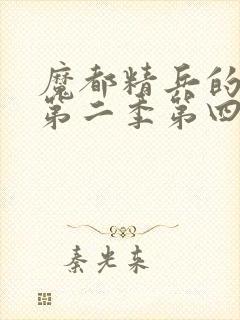 魔都精兵的
第二季第四
秦光东